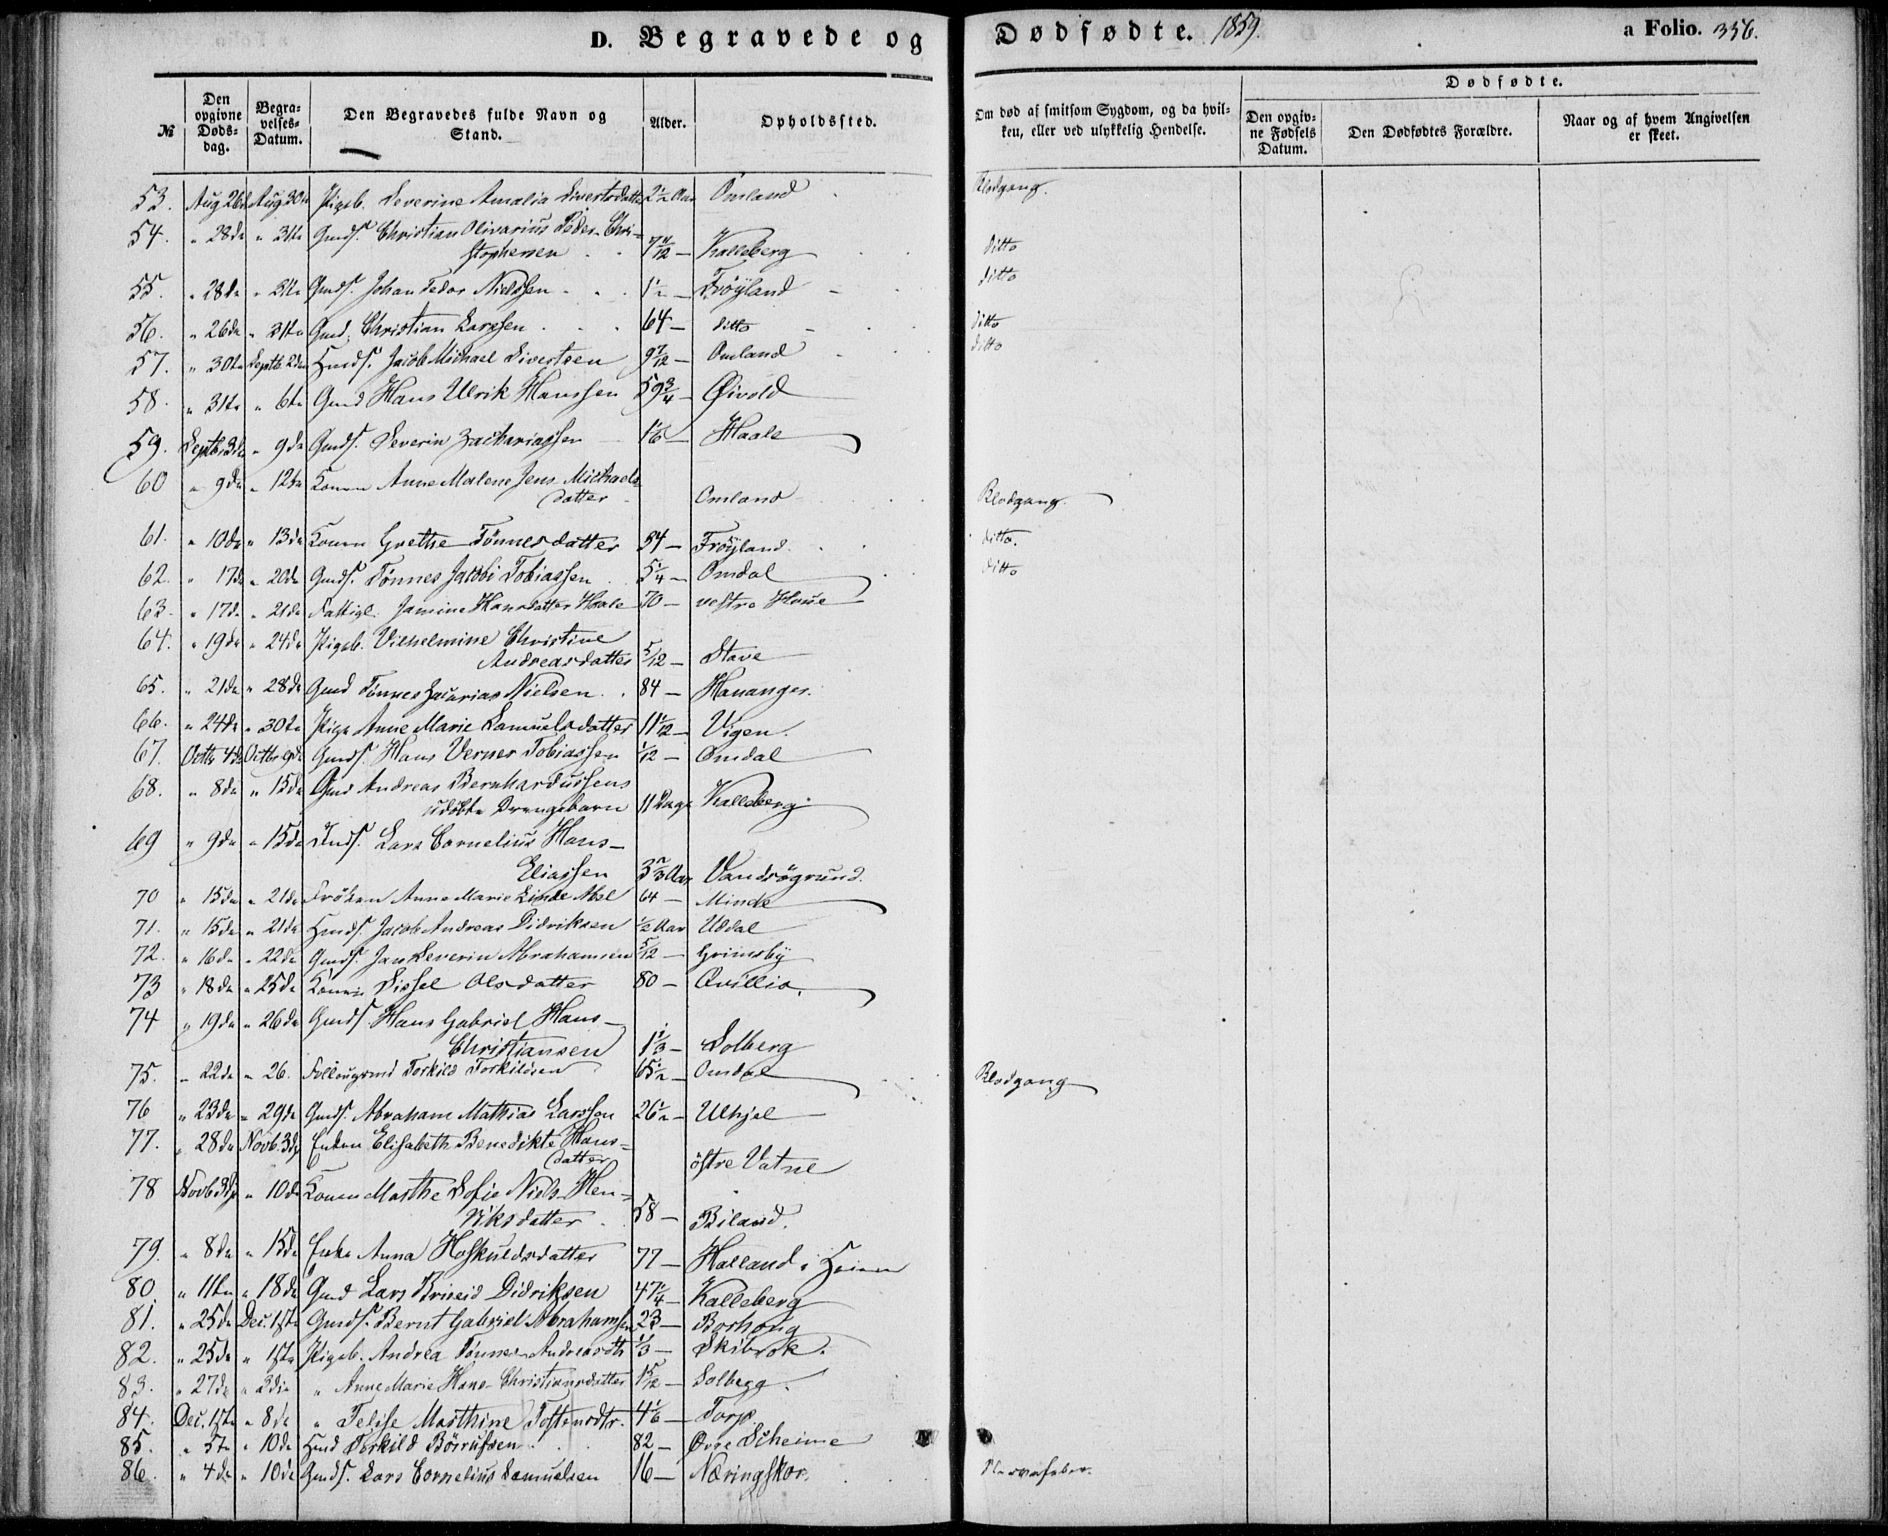 D. Begravede og Dødfødte. 1859. a Folio. 356.
Dødfødte.
№ Den opgivne Døds-dag. Begra-velses-Datum. Den Begravedes fulde Navn og Stand. Alder. Opholdssted. Om død af smitsom Sygdom, og da hvil-ken, eller ved ulykkelig Hendelse. Den opgiv-ne Fødsels Datum. Den Dødfødtes Forældre. Naar og af hvem Angivelsen er skeet.
53. Aug 26de Aug 30te Pigeb. Severine Amalia Sivertsdatter 2½ Aar Omland Blodgang.
54. " 28de " 31te Gmds. Christian Olivarius Peder Chri-
stophersen 7 /12 — Kalleberg ditto
55. " 28de " 31te Gmds. Johan Tedor Nielssen 1½ — Frøyland ditto
56. " 26de " 31te Gmd. Christian Larssen 64 — ditto ditto
57. " 30te Septb. 2den Hmds. Jacob Michael Sivertsen 9 7/12 — Omland ditto
58. " 31te " 6te Gmd Hans Ulrik Hanssen 59¾ — Øivold
59. Septb. 3de " 9de Gmds. Severin Zachariassen — Haale
60 " 9de " 12te Konen Anne Malene Jens Michaels-
datter Omland Blodgang.
61. " 10de " 13de Konen Grethe Tønnesdatter 34 — Frøyland. ditto.
62. " 17de " 20de Gmds. Tønnes Jakobi Tobiassen 5¼ — Omdal ditto
63. " 17de " 21de Fattigl. Jamine Hansdatter Haale 70 — vestre Houe
64. " 19de " 24de Pigeb. Vilhelmine Christine
Andreasdatter 5/12 — Stave
65. " 21de " 28de Gmd Tønnes Zacarias Nielsen 84 — Hananger.
66. " 24de " 30te Pige Anne Marie Samuelsdatter 11 1/12 — Vigen.
67. Octbr 4de Octbr 9de Gmds. Hans Verner Tobiassen 1/12 — Omdal
68. " 8de " 15de Gmd Andreas Bernhardussens
udøbte Drengebarn 11 Dage Kalleberg.
69 " 9de " 15de Inds. Lars Cornelius Hans
Eliassen 3⅔ Aar Vandsøgrund.
70 " 15de " 21de Frøken Anne Marie Linde Abel 64 — Minde
71. " 15de " 21de Hmds. Jacob Andreas Didriksen ½ Aar Uddal
72. " 16de " 22de Gmds. Jan Severin Abrahamsen 5/12 — Grimsby
73 " 18de " 25de Konen Sissel Olsdatter 80 — Qvillio.
74 " 19de " 26de Gmds. Hans Gabriel Hans-
Christiansen 1⅓ — Solberg
75. " 22de " 26. Torkild Torkildsen 65½ — Omdal Blodgang
76 " 23de " 29de Gmds. Abraham Mathias Larssen 26½ — Ulhjel
77. " 28de Novb. 3de Enken Elisabeth Benedikte Hans-
datter østre Vatne
78 Novb 3de " 10de Konen Marthe Sofie Niels Hen-
riksdatter 58 — Biland.
79. " 8de " 15de Enke Anna Hoskuldsdatter 77 — Halland i Heien
80. " 11te " 18de Gmd Lars Briseid Didriksen 47 /4 — Kalleberg
81. " 25de Dec. 1ste Gmds. Bernt Gabriel Abrahamsen 23 — Borhoug
82. " 25de " 1ste Pigeb. Andrea Tønnes Andreasdtr ⅓ — Skibrok.
83. " 27de " 3die " Anne Marie Hans Christiansdatter 1 5/12 — Solbegg.
84. Dec. 1ste " 8de " Telise Marthine Tostensdtr. 4⅙ — Torp
85. " 5te " 10de Hmd Torkild Børrufsen 82 — Øvre Scheime
86. " 4de " 10de Gmds. Lars Cornelius Samuelsen 16 — Næringskor. Nervefeber.